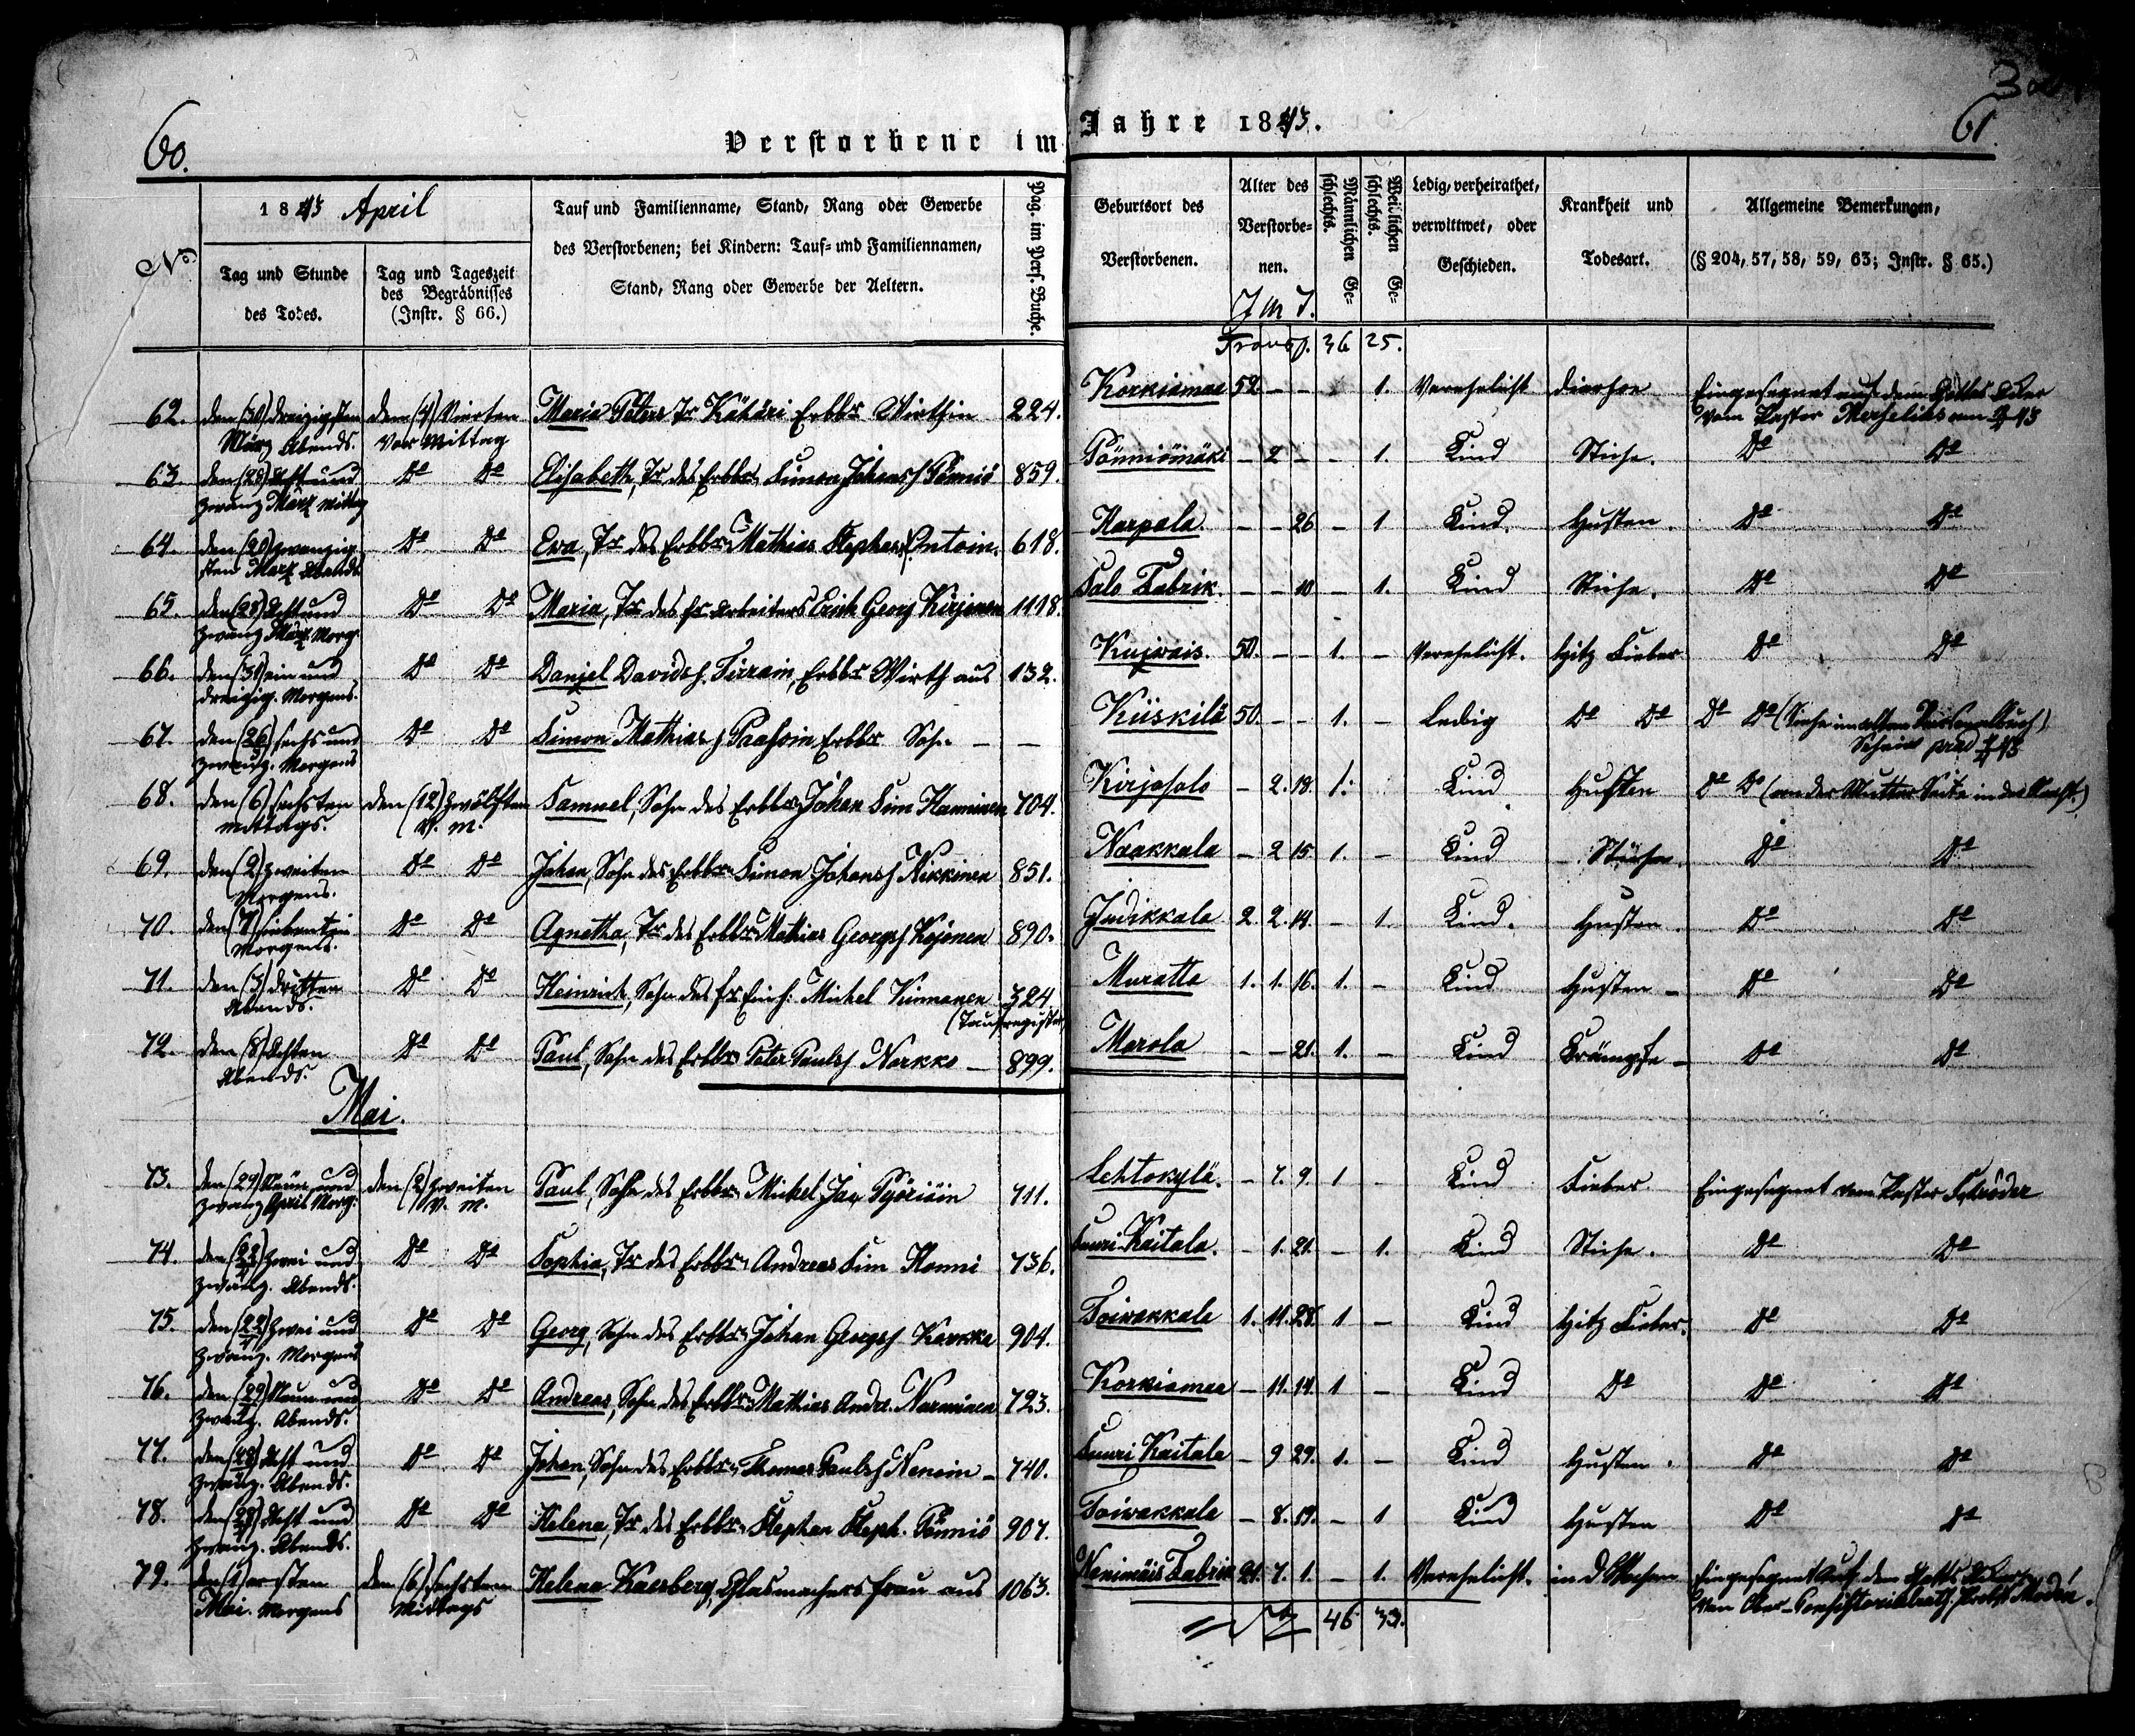 60.
Verstorbene im Jahre 1843.
61.
No
1843 April
Tag und Stunde
des Todes.
Tag und Tageszeit
des Begräbnisses
(Instr. § 66.)
Tauf und Familienname, Stand, Rang oder Gewerbe
des Verstorbenen; bei Kindern: Tauf- und Familiennamen,
Stand, Rang oder Gewerbe der Aeltern.
Pag. im Pers. Buche.
Geburtsort des
Verstorbenen.
Alter des
Verstorbe-
nen.
J M T.
Männlichen Ge-
schlechts.
Weiblichen Ge-
schlechts.
Ledig, verheirathet,
verwittwet, oder
Geschieden.
Krankheit und
Todesart.
Allgemeine Bemerkungen,
(§ 204, 57, 58, 59, 63; Instr. § 65.)
Transp. 36 25.
62. den (30) dreizigsten den (4) Vierten Maria Peters Tr Kähäri Erbbr Wirthin 224. Korkiamaa 52 - - 1. Verehelicht Diarhoe Eingesegnet auf dem Gottes Acker
März Abends. Vor Mittag vom Pastor
63. den (28) Acht und Do Do Elisabeth, Tr des Erbbr Simon Johanss Pönniö 859. Pönniömäki - 2 - - 1. Kind Stiche. Do Do
zwanz März Mittag
64. den (20) zwanzig- Do Do Eva, Tr des Erbbr Mathias Stephans Ontoin. 618. Karpala - - 26 - 1 Kind. Husten. Do Do
sten März Abends
65. den (28) Acht und Do Do Maria, Tr des Arbeiters Erich Georg Kirjonen 1118. Salo Fabrik. - - 10 - 1. Kind Stiche. Do Do
zwanz März Morg.
66. den (31) ein und Do Do Danjel Davids Tirrain, Erbbr Wirth aus 132. Kujwais. 50. - - 1. - Verehelicht. Hitz Fieber Do Do
dreizig. Morgens.
67. den (26) sechs und Do Do Simon Mathias Paasoin Erbbr Sohn - - Kiiskilä 50. - - 1. - Ledig Do Do Do Do (Siehe im alten Personalbuch)
zwanz. Morgens
68. den (6) sechsten den (12) zwölften Samuel, Sohn des Erbbr Johan Sim Hanninen 704. Kirjasalo - 2. 18. 1. Kind Husten Do Do
mittags. V. M.
69. den (2) zweiten Do Do Johan, Sohn des Erbbr Simon Johanss Nikkinen 851. Naakkala - 2 15 1. - Kind Stiche Do Do
Morgens.
70. den (7) siebenten Do Do Agnetha, Tr des Erbbr Mathias Georgs Kojonen 890. Judikkala 2 2. 14. - 1. Kind. Husten. Do Do
Morgens.
71. den (3) dritten Do Do Heinrich, Sohn des Michel Kinnanen 324. Muratta 1. 1. 16. 1. - Kind Husten - Do Do
Abends. (Taufregister)
72. den (8) Achten Do Do Paul, Sohn des Erbbr Peter Pauls Norkko - 899. Marola - - 21. 1. - Kind Krämpfe - Do Do
Abends.
Mai.
73. den (29) Neun und den (2) zweiten Paul, Sohn des Erbbr Michel Jac Pyöriäin 711. Lehtokylä. - 7. 9. 1 - Kind Fieber. Eingesegnet vom Pastor Schröder
zwanz April Morg. V. M.
74. den (22) zwei und Do Do Sophia, Tr des Erbbr Andreas Sim Honni 736. Suuri-Kaitala. - 1. 21. - 1. Kind Stiche. Do Do
zwanz. Abends.
75. den (22) zwei und Do Do Georg, Sohn des Erbbr Johan Georgs Karkka 904. Toiwakkala 1. 11. 28. 1 - Kind Hitz Fieber. Do Do
zwanz. Morgens
76. den (29) Neun und Do Do Andreas, Sohn des Erbbr Mathias Andr. Narminen 723. Korkiamaa - 11. 14. 1 - Kind Do Do Do
zwanz. Abends.
77. den (28) Acht und Do Do Johan, Sohn des Erbbr Thomas Pauls Nenoin - 740. Suuri Kaitala - 9 29. 1. - Kind Husten. Do Do
zwanz. Abends.
78. den (28) Acht und Do Do Helena, Tr des Erbbr Stephan Steph. Pönniö 907. Toiwakkala - 8. 19. - 1 Kind Husten Do Do
zwanz. Abends.
79. den (1) ersten den (6) sechsten Helena Kaesberg, Glasmachers frau aus 1063. Fabrik 21. 7. 1. - 1. Verehelicht. in d Wochen Eingesegnet auf dem Gottes Acker
Mai. Morgens Mittags von Ober-Consistorialrath, Probst
46 33.